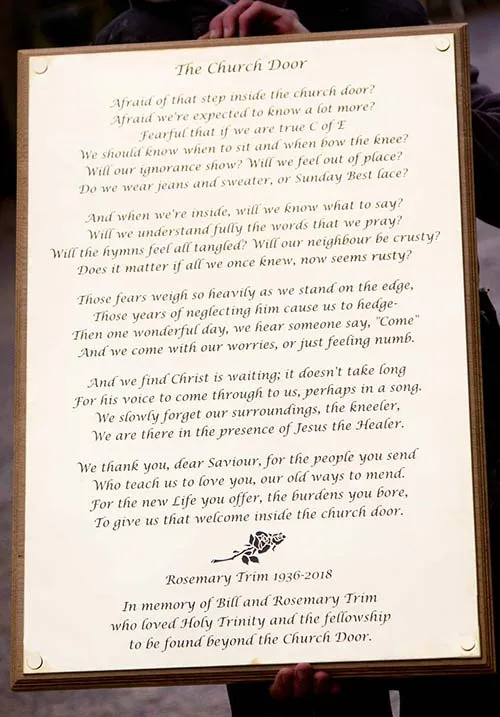 The Church Door
Afraid of that step inside the church door?
Afraid we're expected to know a lot more?
Fearful that if we are true C of E
We should know when to sit and when bow the knee?
Will our ignorance show? Will we feel out of place?
Do we wear jeans and sweater, or Sunday Best lace?
And when we're inside, will we know what to say?
Will we understand fully the words that we pray?
Will the hymns feel all tangled? Will our neighbour be crusty?
Does it matter if all we once knew, now seems rusty?
Those fears weigh so heavily as we stand on the edge,
Those years of neglecting him cause us to hedge-
Then one wonderful day, we hear someone say, "Come"
And we come with our worries, or just feeling numb.
And we find Christ is waiting; it doesn't take long
For his voice to come through to us, perhaps in a song.
We slowly forget our surroundings, the kneeler,
We are there in the presence of Jesus the Healer.
We thank you, dear Saviour, for the people you send
Who teach us to love you, our old ways to mend.
For the new Life you offer, the burdens you bore,
To give us that welcome inside the church door.
Rosemary Trim 1936-2018
In memory of Bill and Rosemary Trim
who loved Holy Trinity and the fellowship
to be found beyond the Church Door.